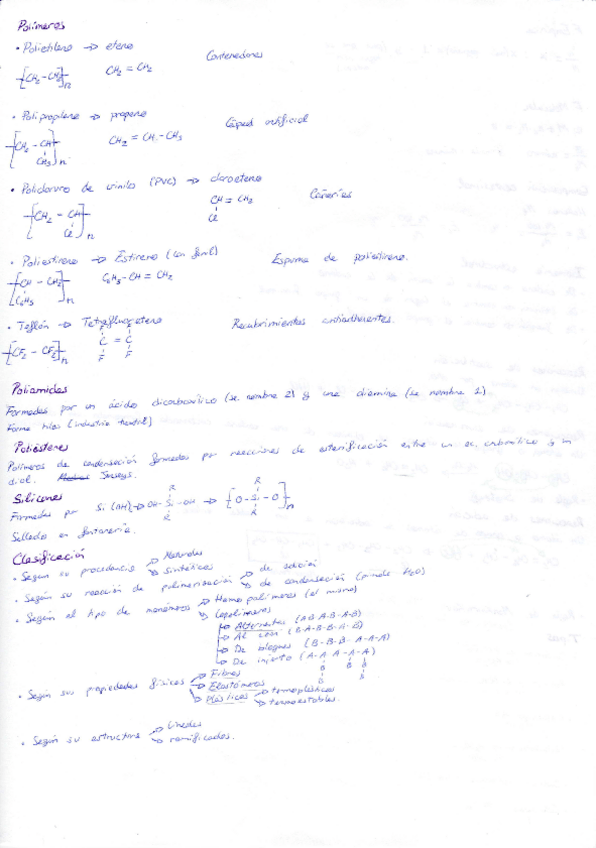 Polímeros
• Polietileno → eteno Contenedores
[CH2 - CH2]n CH2 = CH2
• Polipropileno → propeno Césped artificial
[CH2 - CH]n CH2 = CH - CH3
CH3
• Policloruro de vinilo (PVC) → cloroeteno Cañerías
[CH2 - CH]n CH = CH2
Cl Cl
• Poliestireno → Estireno (con fenil) Espuma de poliestireno.
[CH - CH2]n C6H5 - CH = CH2
C6H5
• Teflón → Tetrafluoroeteno Recubrimientos antiadherentes.
F F
[CF2 - CF2]n C = C
F F
Poliamidas
Formadas por un ácido dicarboxílico (se nombra 2) y una diamina (se nombra 1).
Forma hilos (industria textil)
Poliésteres
Polímeros de condensación formados por reacciones de esterificación entre un ac. carboxílico y un
diol.
Siliconas
R
Formadas por Si (OH) → OH - Si - OH → [O - Si - O]n
R
Sellado en fontanería.
Clasificación
• Según su procedencia → Naturales
→ Sintéticos
• Según su reacción de polimerización → de adición
→ de condensación (pierde H2O)
• Según el tipo de monómeros → Homopolímeros (el mismo)
→ Copolímeros
→ Alternantes (A-B-A-B-A-B)
→ Al azar (B-A-B-B-A-B)
→ De bloques (B-B-B-A-A-A)
→ De injerto (A-A-A-A-A)
B B B
B B
• Según sus propiedades físicas → Fibras
→ Elastómeros
→ Plásticos → termoplásticos
→ termoestables.
• Según su estructura → Lineales
→ ramificados.